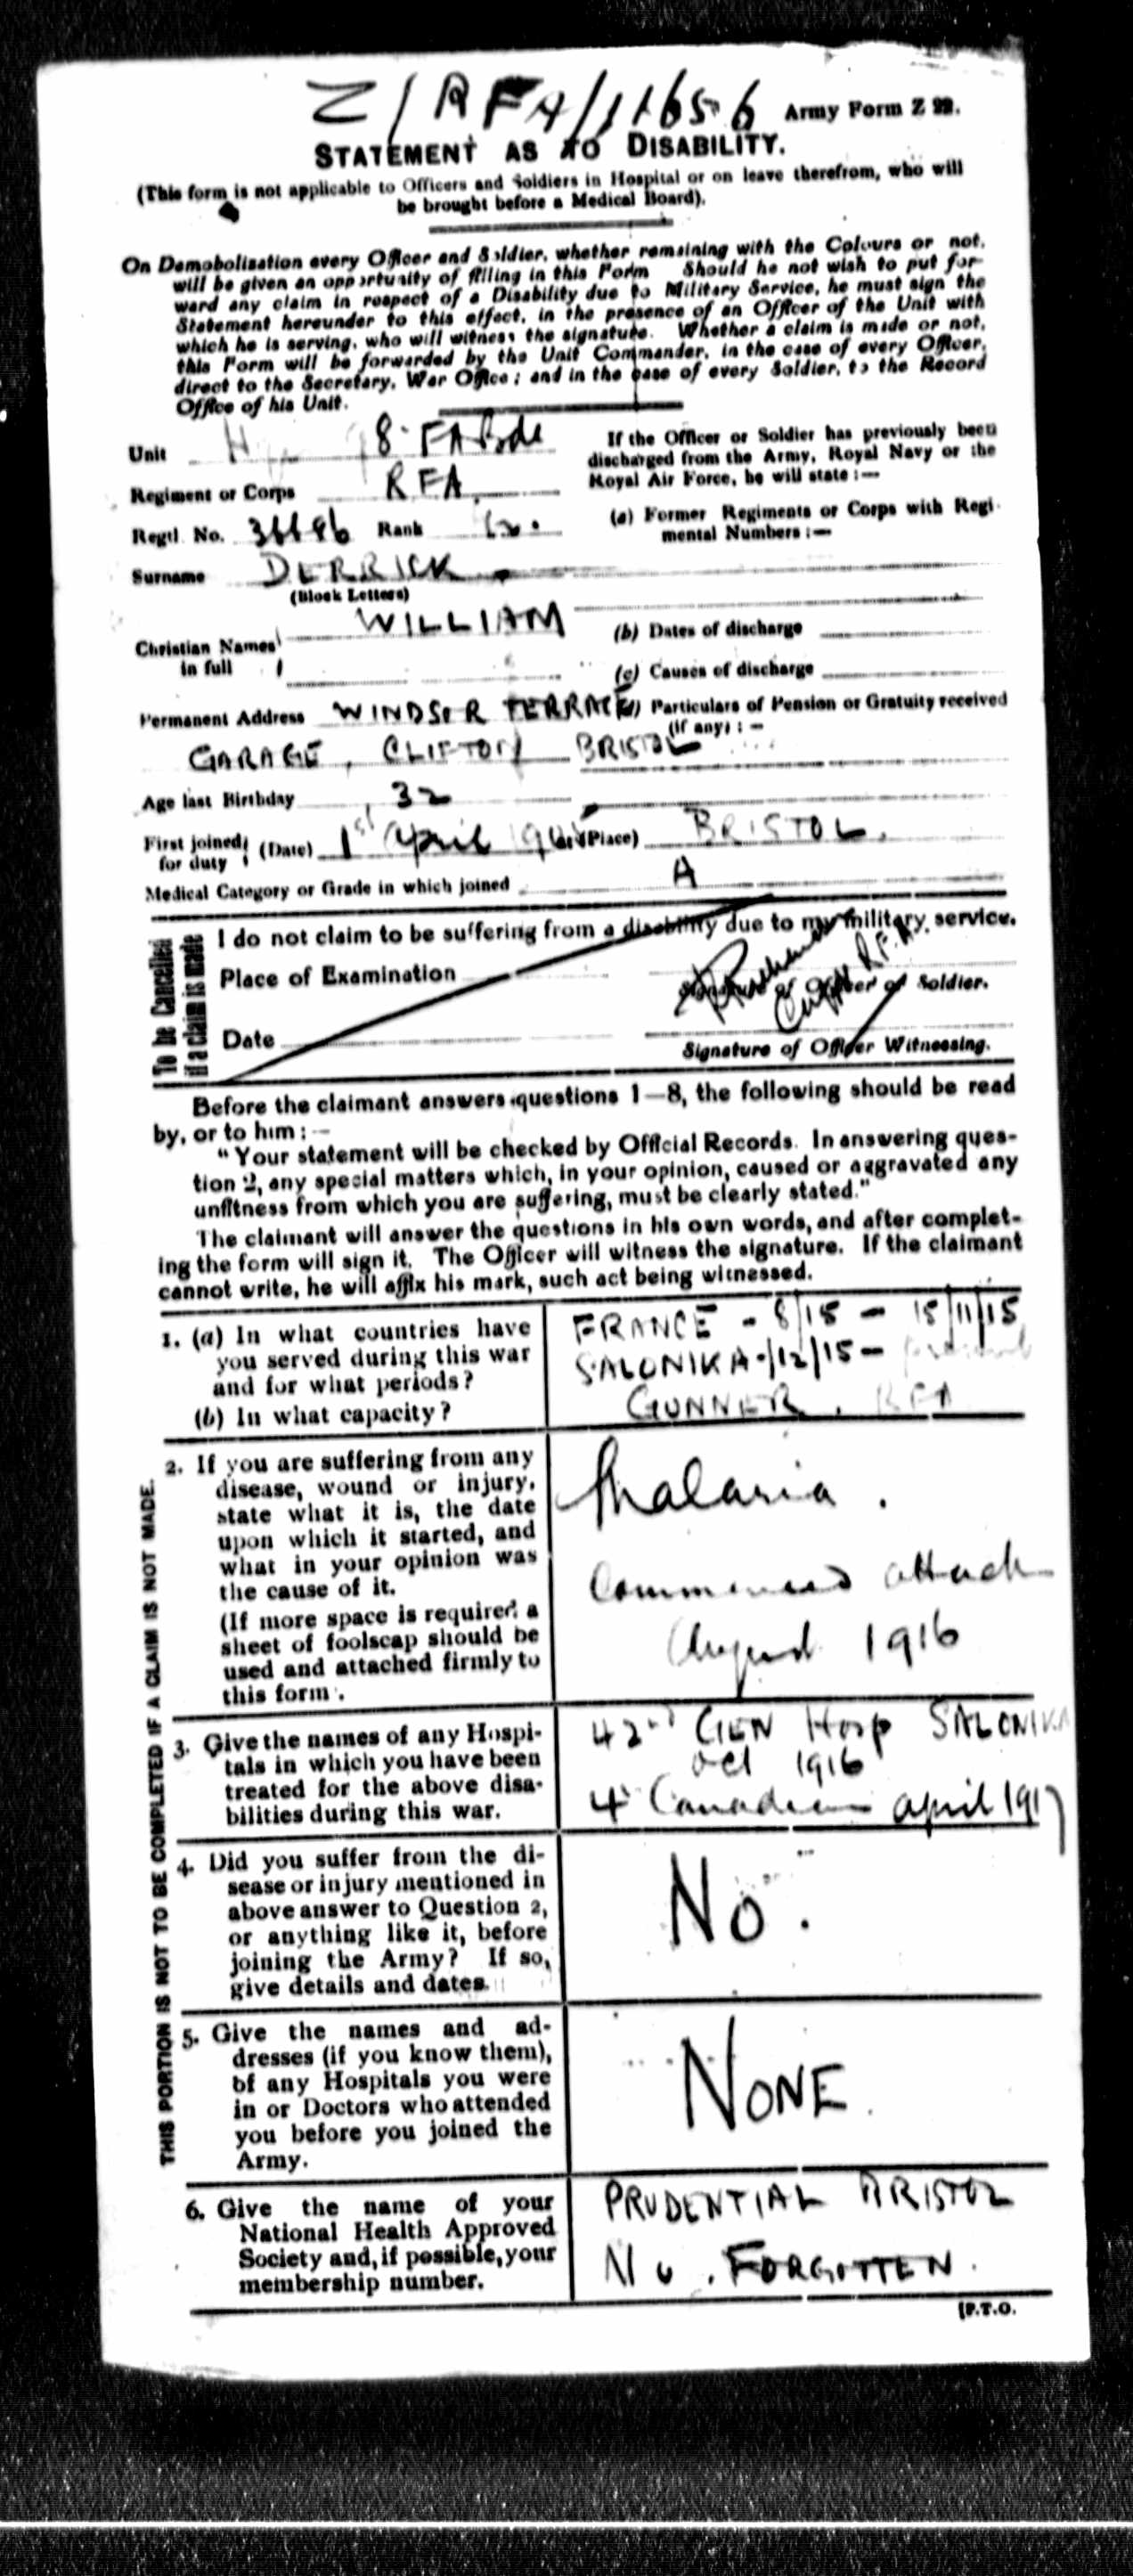 Z/RFA/11656 Army Form Z 22.
STATEMENT AS TO DISABILITY.
(This form is not applicable to Officers and Soldiers in Hospital or on leave therefrom, who will
be brought before a Medical Board).
On Demobolisation every Officer and Soldier, whether remaining with the Colours or not,
will be given an opportunity of filling in this Form Should he not wish to put for-
ward any claim in respect of a Disability due to Military Service, he must sign the
Statement hereunder to this effect, in the presence of an Officer of the Unit with
which he is serving, who will witness the signature. Whether a claim is made or not,
this Form will be forwarded by the Unit Commander, in the case of every Officer,
direct to the Secretary, War Office; and in the case of every Soldier, to the Record
Office of his Unit.
Unit 8 FA Bde
Regiment or Corps RFA
Regtl. No. Rank
Surname DERRICK
(Block Letters)
Christian Names WILLIAM
in full
Permanent Address WINDSOR TERRACE
GARAGE, CLIFTON BRISTOL
Age last Birthday 32
If the Officer or Soldier has previously been
discharged from the Army, Royal Navy or the
Royal Air Force, he will state :—
(a) Former Regiments or Corps with Regi-
mental Numbers :—
(b) Dates of discharge
(c) Causes of discharge
Particulars of Pension or Gratuity received
(if any) : —
First joined (Date) 1st April (Place) BRISTOL.
for duty
Medical Category or Grade in which joined A
To be Cancelled
if a claim is made
I do not claim to be suffering from a disability due to my military service.
Place of Examination
Signature of Officer or Soldier.
Date
Signature of Officer Witnessing.
Before the claimant answers questions 1—8, the following should be read
by, or to him :—
"Your statement will be checked by Official Records. In answering ques-
tion 2, any special matters which, in your opinion, caused or aggravated any
unfitness from which you are suffering, must be clearly stated."
The claimant will answer the questions in his own words, and after complet-
ing the form will sign it. The Officer will witness the signature. If the claimant
cannot write, he will affix his mark, such act being witnessed.
THIS PORTION IS NOT TO BE COMPLETED IF A CLAIM IS NOT MADE.
1. (a) In what countries have
you served during this war
and for what periods?
(b) In what capacity?
FRANCE - 8/15 - 15/11/15
SALONIKA - /12/15 - present
GUNNER. RFA
2. If you are suffering from any
disease, wound or injury,
state what it is, the date
upon which it started, and
what in your opinion was
the cause of it.
(If more space is required a
sheet of foolscap should be
used and attached firmly to
this form).
Malaria.
Commenced attack
August 1916
3. Give the names of any Hospi-
tals in which you have been
treated for the above disa-
bilities during this war.
42nd GEN Hosp SALONIKA
Oct 1916
4th Canadian april 1917
4. Did you suffer from the di-
sease or injury mentioned in
above answer to Question 2,
or anything like it, before
joining the Army? If so,
give details and dates.
No.
5. Give the names and ad-
dresses (if you know them),
of any Hospitals you were
in or Doctors who attended
you before you joined the
Army.
NONE.
6. Give the name of your
National Health Approved
Society and, if possible, your
membership number.
PRUDENTIAL BRISTOL
No. FORGOTTEN.
[P.T.O.